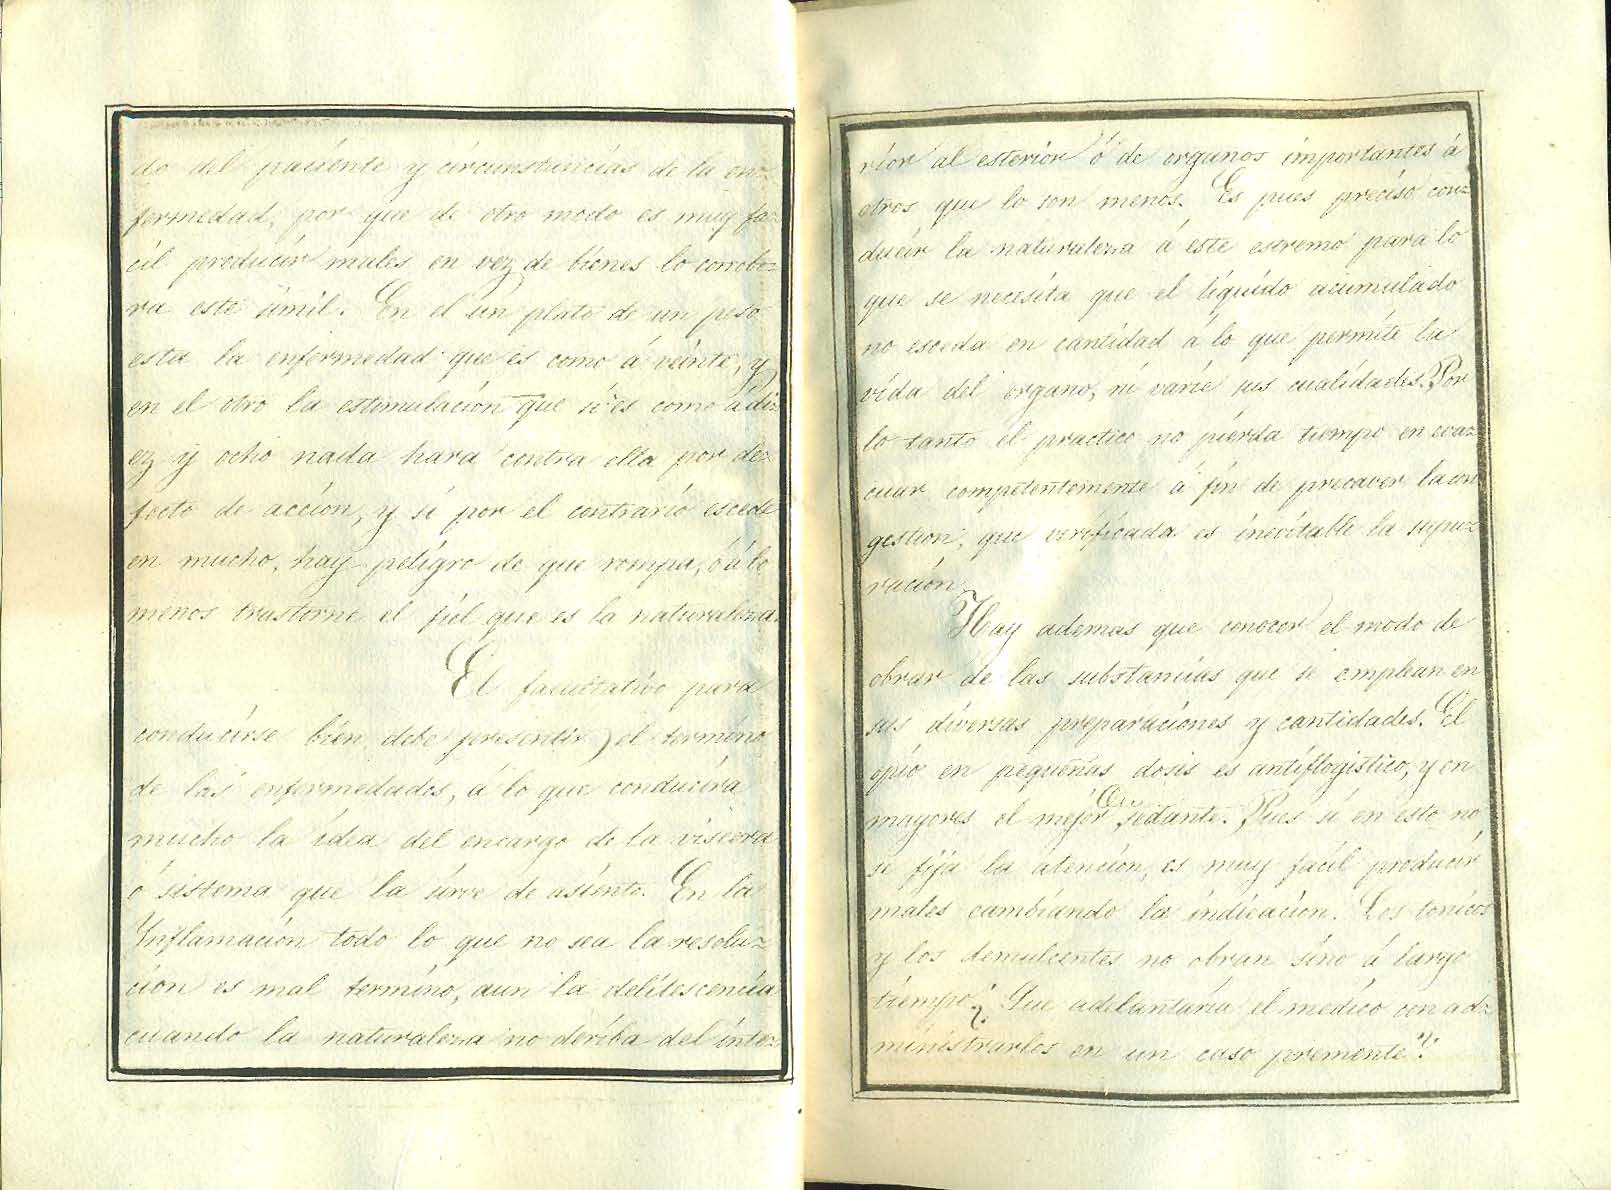 do del paciente y circunstancias de la en=
fermedad, por que de otro modo es muy fa=
cil producir males en vez de bienes lo corrobo=
ra este simil. En el un plato de un peso
esta la enfermedad que es como á veinte, y
en el otro la estimulación que si es como á di=
ez y ocho nada hara contra ella por de=
fecto de acción, y si por el contrario escede
en mucho, hay peligro de que rompa, ó á lo
menos trastorne el fiel que es la naturaleza.
El facultativo para
conducirse bien debe presentir el termino
de las enfermedades, á lo que conducira
mucho la idea del encargo de la viscera
ó sistema que la sirve de asiento. En la
Ynflamación todo lo que no sea la resolu=
ción es mal término, aun la delitescencia
cuando la naturaleza no deriba del inte=
rior al esterior ó de organos importantes á
otros que lo son menos. Es pues preciso con=
ducir la naturaleza á este estremo para lo
que se necesita que el líquido acumulado
no esceda en cantidad á lo que permite la
vida del organo, ni varíe sus cualidades. Por
lo tanto el practico no pierda tiempo en eva=
cuar competentemente á fin de precaver la con
gestion, que verificada es inevitable la supu=
ración.
Hay ademas que conocer el modo de
obrar de las substancias que se emplean en
sus diversas preparaciones y cantidades. El
opio en pequeñas dosis es antiflogistico, y en
mayores el mejor sedante. Pues si en esto no
se fija la atención, es muy facil producir
males cambiando la indicación. Los tonicos
y los demulcentes no obran sino á largo
tiempo ¿Que adelantaria el medico con ad=
ministrarlos en un caso premente?